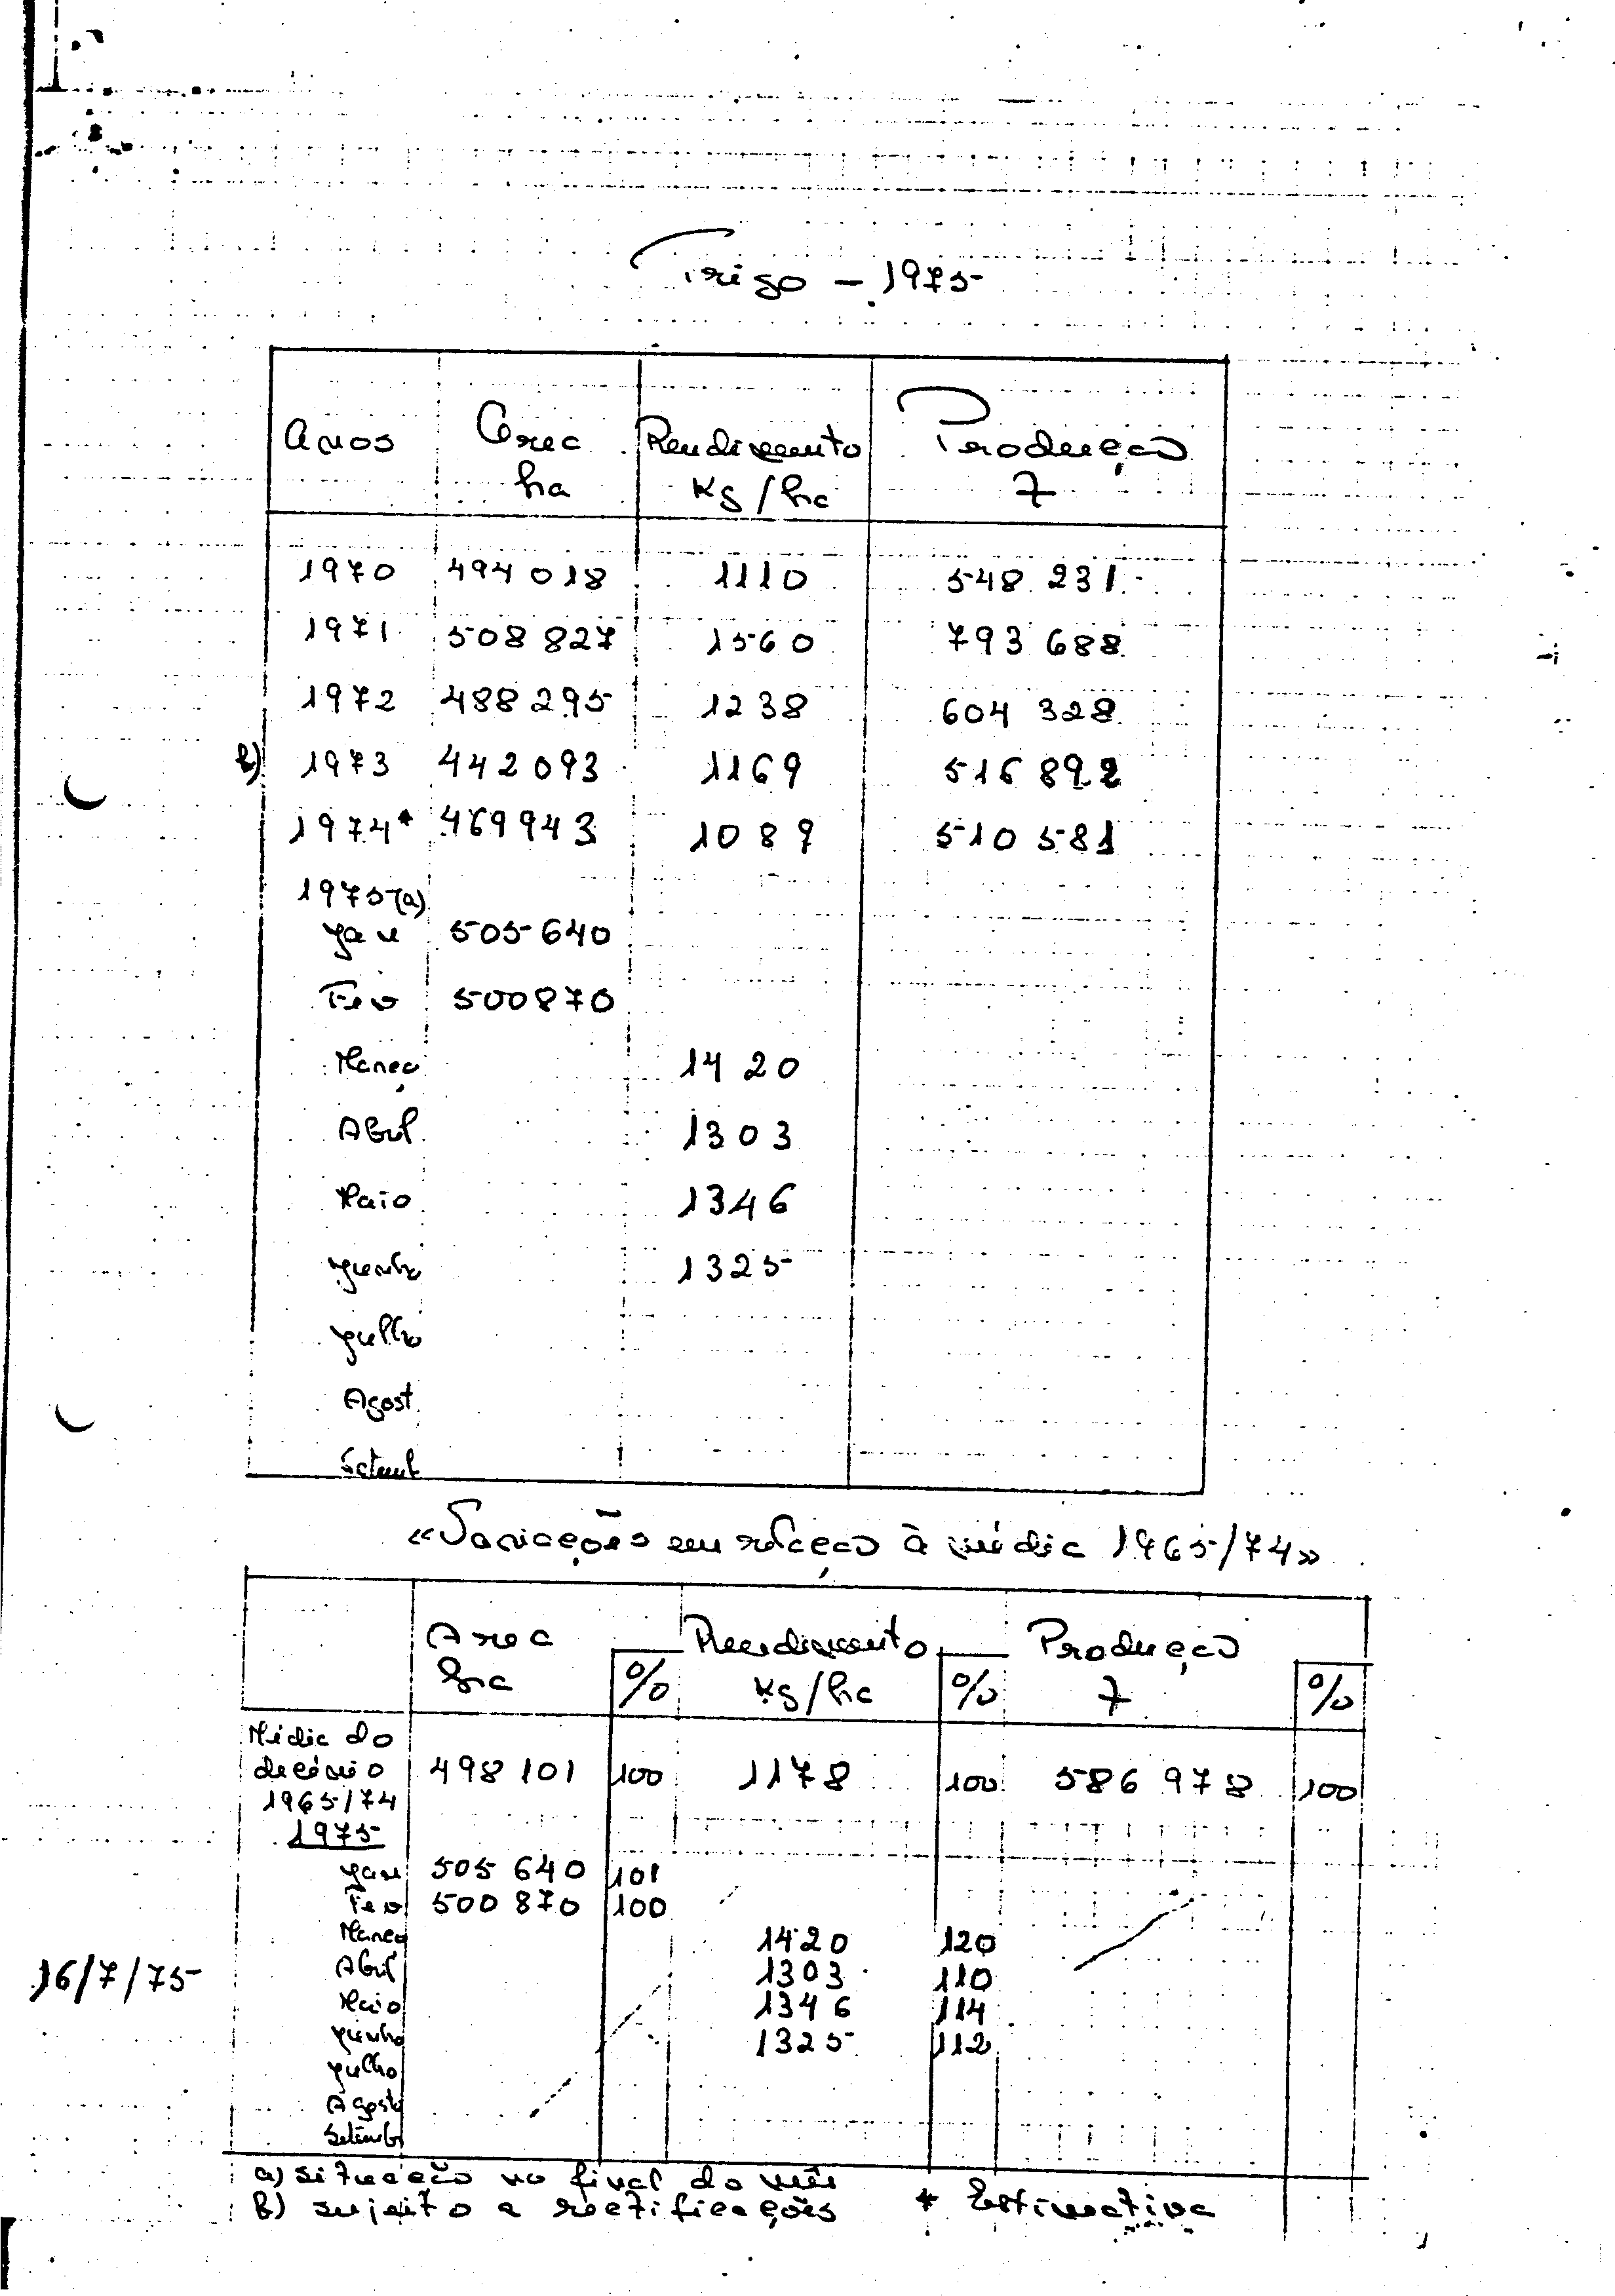 Trigo - 1975
Anos Área Rendimento Produção
ha Kg/ha T
1970 494 018 1110 548 231
1971 508 827 1560 793 688
1972 488 295 1238 604 328
b) 1973 442 093 1169 516 892
1974* 469 943 1087 510 581
1975(a)
Jan 505 640
Fev 500 870
Março 1420
Abril 1303
Maio 1346
Junho 1325
Julho
Agost
Setemb
«Variações em relação à média 1965/74»
Área Rendimento Produção
ha % Kg/ha % T %
Média do
decénio 498 101 100 1178 100 586 978 100
1965/74
1975
Jan 505 640 101
Fev 500 870 100
Março 1420 120
Abril 1303 110
16/7/75
Maio 1346 114
Junho 1325 112
Julho
Agosto
Setemb
a) situação no final do mês
b) sujeito a rectificações * Estimativa